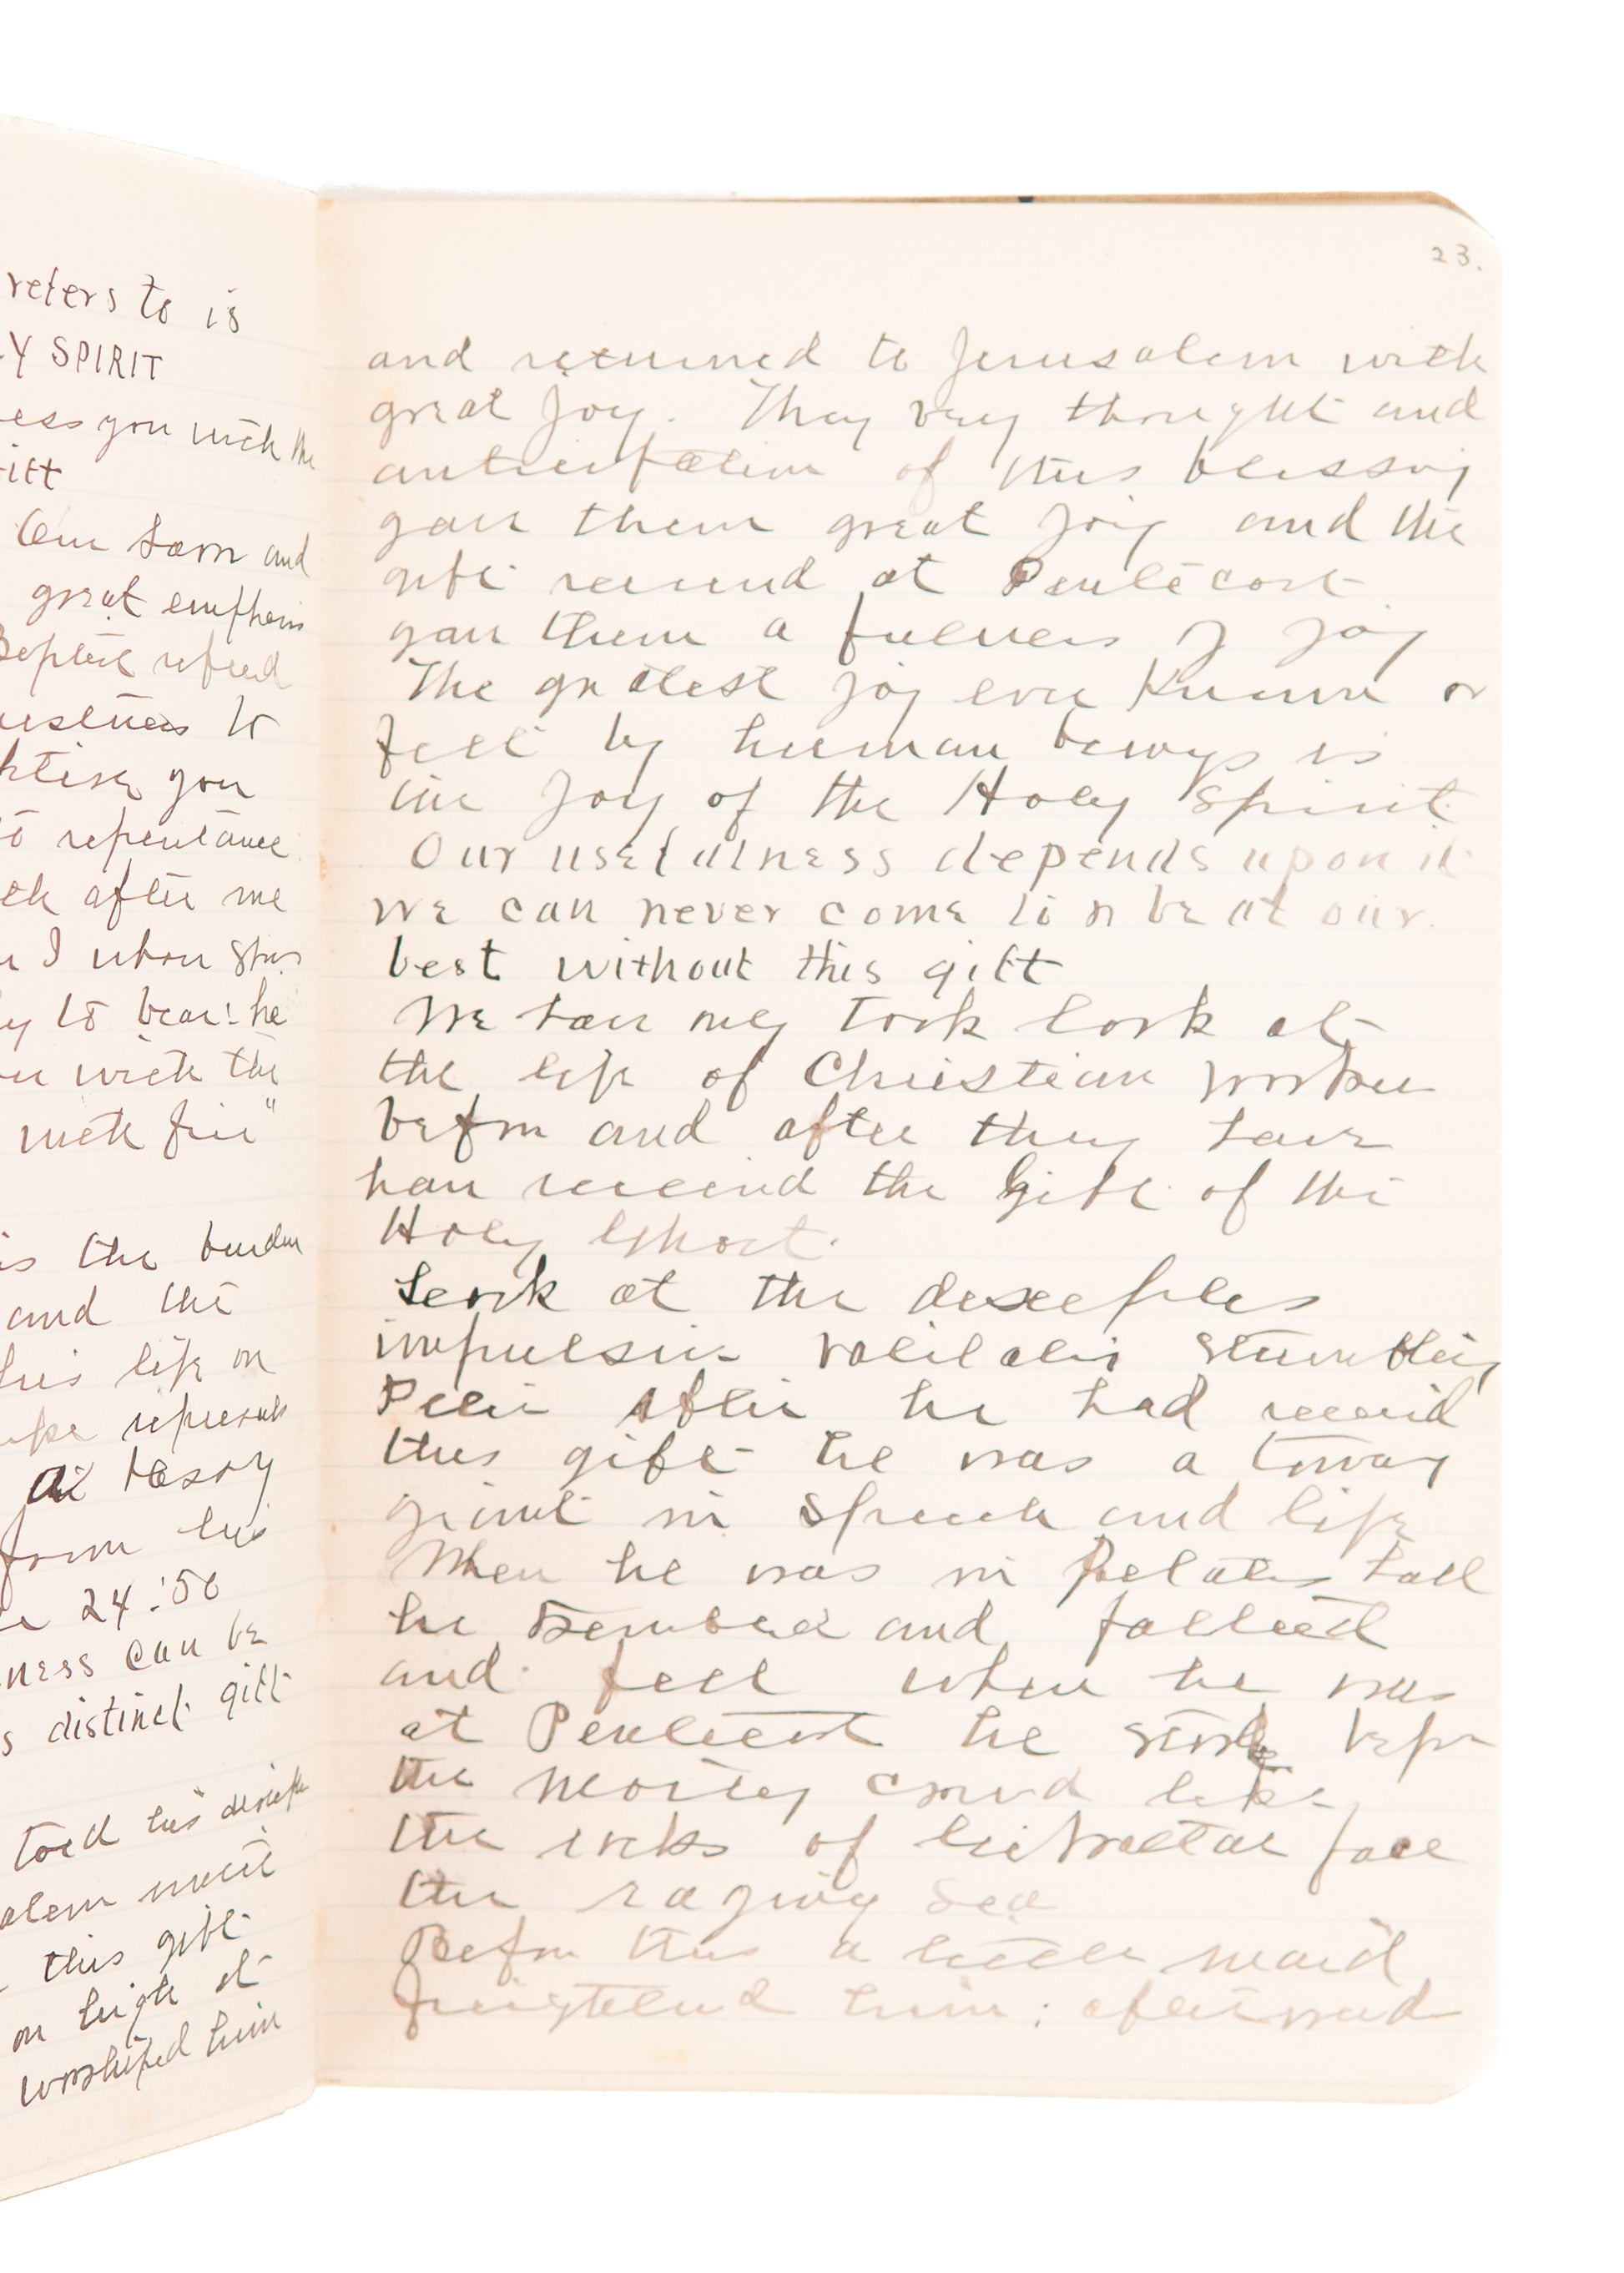 reters to is
Y SPIRIT
ess you with the
itt
Our Lord and
great emphasis
Baptist refered
to
ptise you
to repentance
eth after me
I whose shoes
y to bear: he
ou with the
with fire"
is the burden
and the
his life on
represents
at
from his
24:50
ness can be
s distinct gift
told his disciples
alem until
this gift
on high at
worshiped him
23.
and returned to Jerusalem with
great Joy. They very thought and
anticipation of this blessing
gave them great joy and the
gift received at Pentecost
gave them a fulness of joy
The greatest joy ever known or
felt by human beings is
the Joy of the Holy Spirit.
Our usefulness depends upon it
We can never come to n be at our
best without this gift
We have only took look at
the life of Christian workers
before and after they have
have received the Gift of the
Holy Ghost.
Look at the disciples
impulsive volilatir stumbling
Peter After he had received
this gift he was a towing
giant in Speech and life
When he was in Pilates hall
he trembled and falleed
and fell when he was
at Pentecost he stode before
the motley crowd like
the rocks of Gibraltar face
the raging sea
Before this a little maid
frightened him; afterward